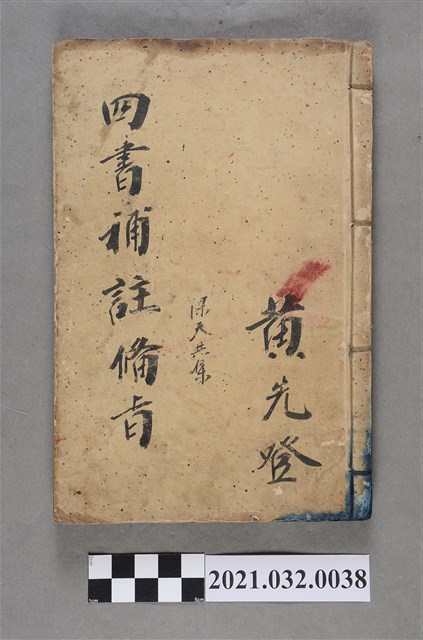 黄先登
四書補註備旨
2021.032.0038